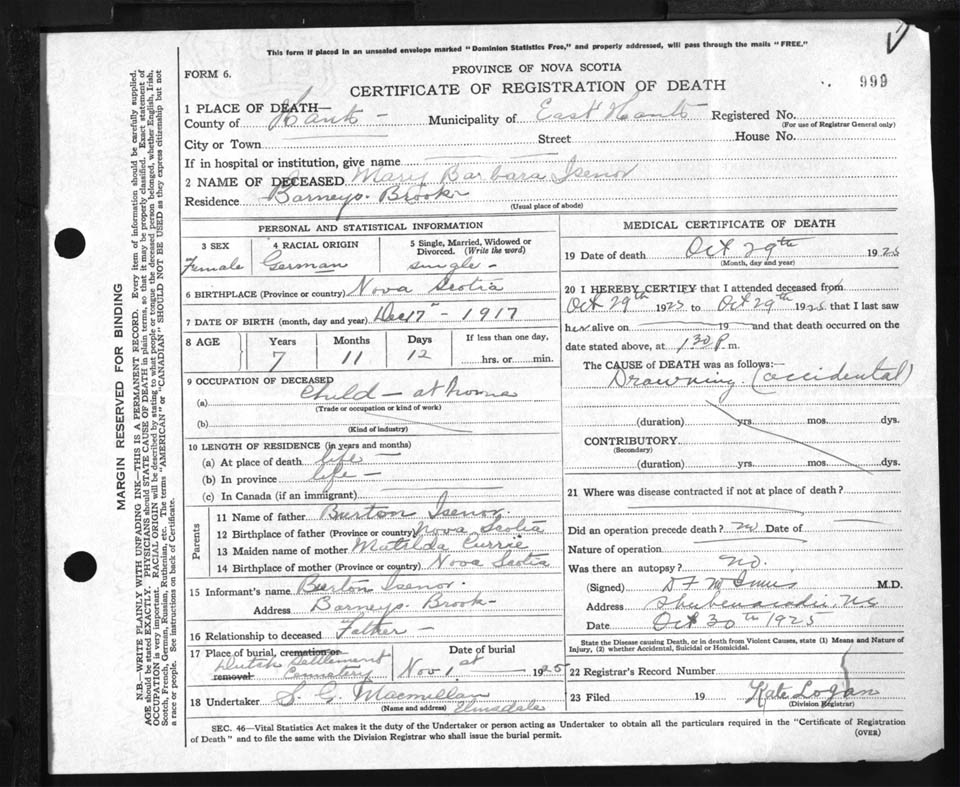 This form if placed in an unsealed envelope marked "Dominion Statistics Free," and properly addressed, will pass through the mails "FREE."
FORM 6.
PROVINCE OF NOVA SCOTIA
999
CERTIFICATE OF REGISTRATION OF DEATH
1 PLACE OF DEATH—
County of Hants - Municipality of East Hants Registered No.
(For use of Registrar General only)
City or Town Street House No.
If in hospital or institution, give name
2 NAME OF DECEASED Mary Barbara Isenor
Residence Barneys Brook
(Usual place of abode)
PERSONAL AND STATISTICAL INFORMATION
3 SEX 4 RACIAL ORIGIN 5 Single, Married, Widowed or Divorced. (Write the word)
Female German single -
6 BIRTHPLACE (Province or country) Nova Scotia
7 DATE OF BIRTH (month, day and year) Dec 17 - 1917
8 AGE Years Months Days If less than one day,
7 11 12 hrs. or min.
9 OCCUPATION OF DECEASED
(a) Child - at home
(Trade or occupation or kind of work)
(b)
(Kind of industry)
10 LENGTH OF RESIDENCE (in years and months)
(a) At place of death life -
(b) In province life -
(c) In Canada (if an immigrant)
Parents
11 Name of father Burton Isenor.
12 Birthplace of father (Province or country) Nova Scotia
13 Maiden name of mother Matilda Currie
14 Birthplace of mother (Province or country) Nova Scotia
15 Informant's name Burton Isenor.
Address Barneys Brook -
16 Relationship to deceased Father -
17 Place of burial, cremation or removal Date of burial
Dutch Settlement
Cemetery Nov 1st 1925
18 Undertaker S. G. Macmillan
(Name and address) Elmsdale
MEDICAL CERTIFICATE OF DEATH
19 Date of death Oct 29th 1925
(Month, day and year)
20 I HEREBY CERTIFY that I attended deceased from
Oct 29th 1925 to Oct 29th 1925 that I last saw
her alive on 19 and that death occurred on the
date stated above, at 1 30 P. m.
The CAUSE of DEATH was as follows:—
Drowning. (accidental)
(duration) yrs. mos. dys.
CONTRIBUTORY
(Secondary)
(duration) yrs. mos. dys.
21 Where was disease contracted if not at place of death?
Did an operation precede death? no Date of
Nature of operation
Was there an autopsy? no.
(Signed) D F McInnis M.D.
Address Shubenacadie NS
Date Oct 30th 1925
State the Disease causing Death, or in death from Violent Causes, state (1) Means and Nature of
Injury, (2) whether Accidental, Suicidal or Homicidal.
22 Registrar's Record Number
23 Filed 19 Kate Logan
(Division Registrar)
SEC. 46—Vital Statistics Act makes it the duty of the Undertaker or person acting as Undertaker to obtain all the particulars required in the "Certificate of Registration
of Death" and to file the same with the Division Registrar who shall issue the burial permit.
(OVER)
MARGIN RESERVED FOR BINDING
N.B.—WRITE PLAINLY WITH UNFADING INK—THIS IS A PERMANENT RECORD. Every item of information should be carefully supplied.
AGE should be stated EXACTLY. PHYSICIANS should STATE CAUSE OF DEATH in plain terms, so that it may be properly classified. Exact statement of
OCCUPATION is very important. RACIAL ORIGIN will be described by stating to what people or tongue the deceased person belonged, whether English, Irish,
Scotch, French, German, Russian, Ruthenian, etc. The terms "AMERICAN" or "CANADIAN" SHOULD NOT BE USED as they express citizenship but not
a race or people. See instructions on back of Certificate.